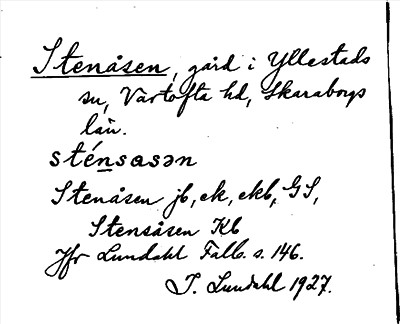 Stenåsen, gård i Yllestads
sn, Vartofta hd, Skaraborgs
län.
sténsasən
Stenåsen jb, ek, ekb, GS,
Stensåsen Kb
Jfr Lundahl Falb. s. 146.
I. Lundahl 1927.